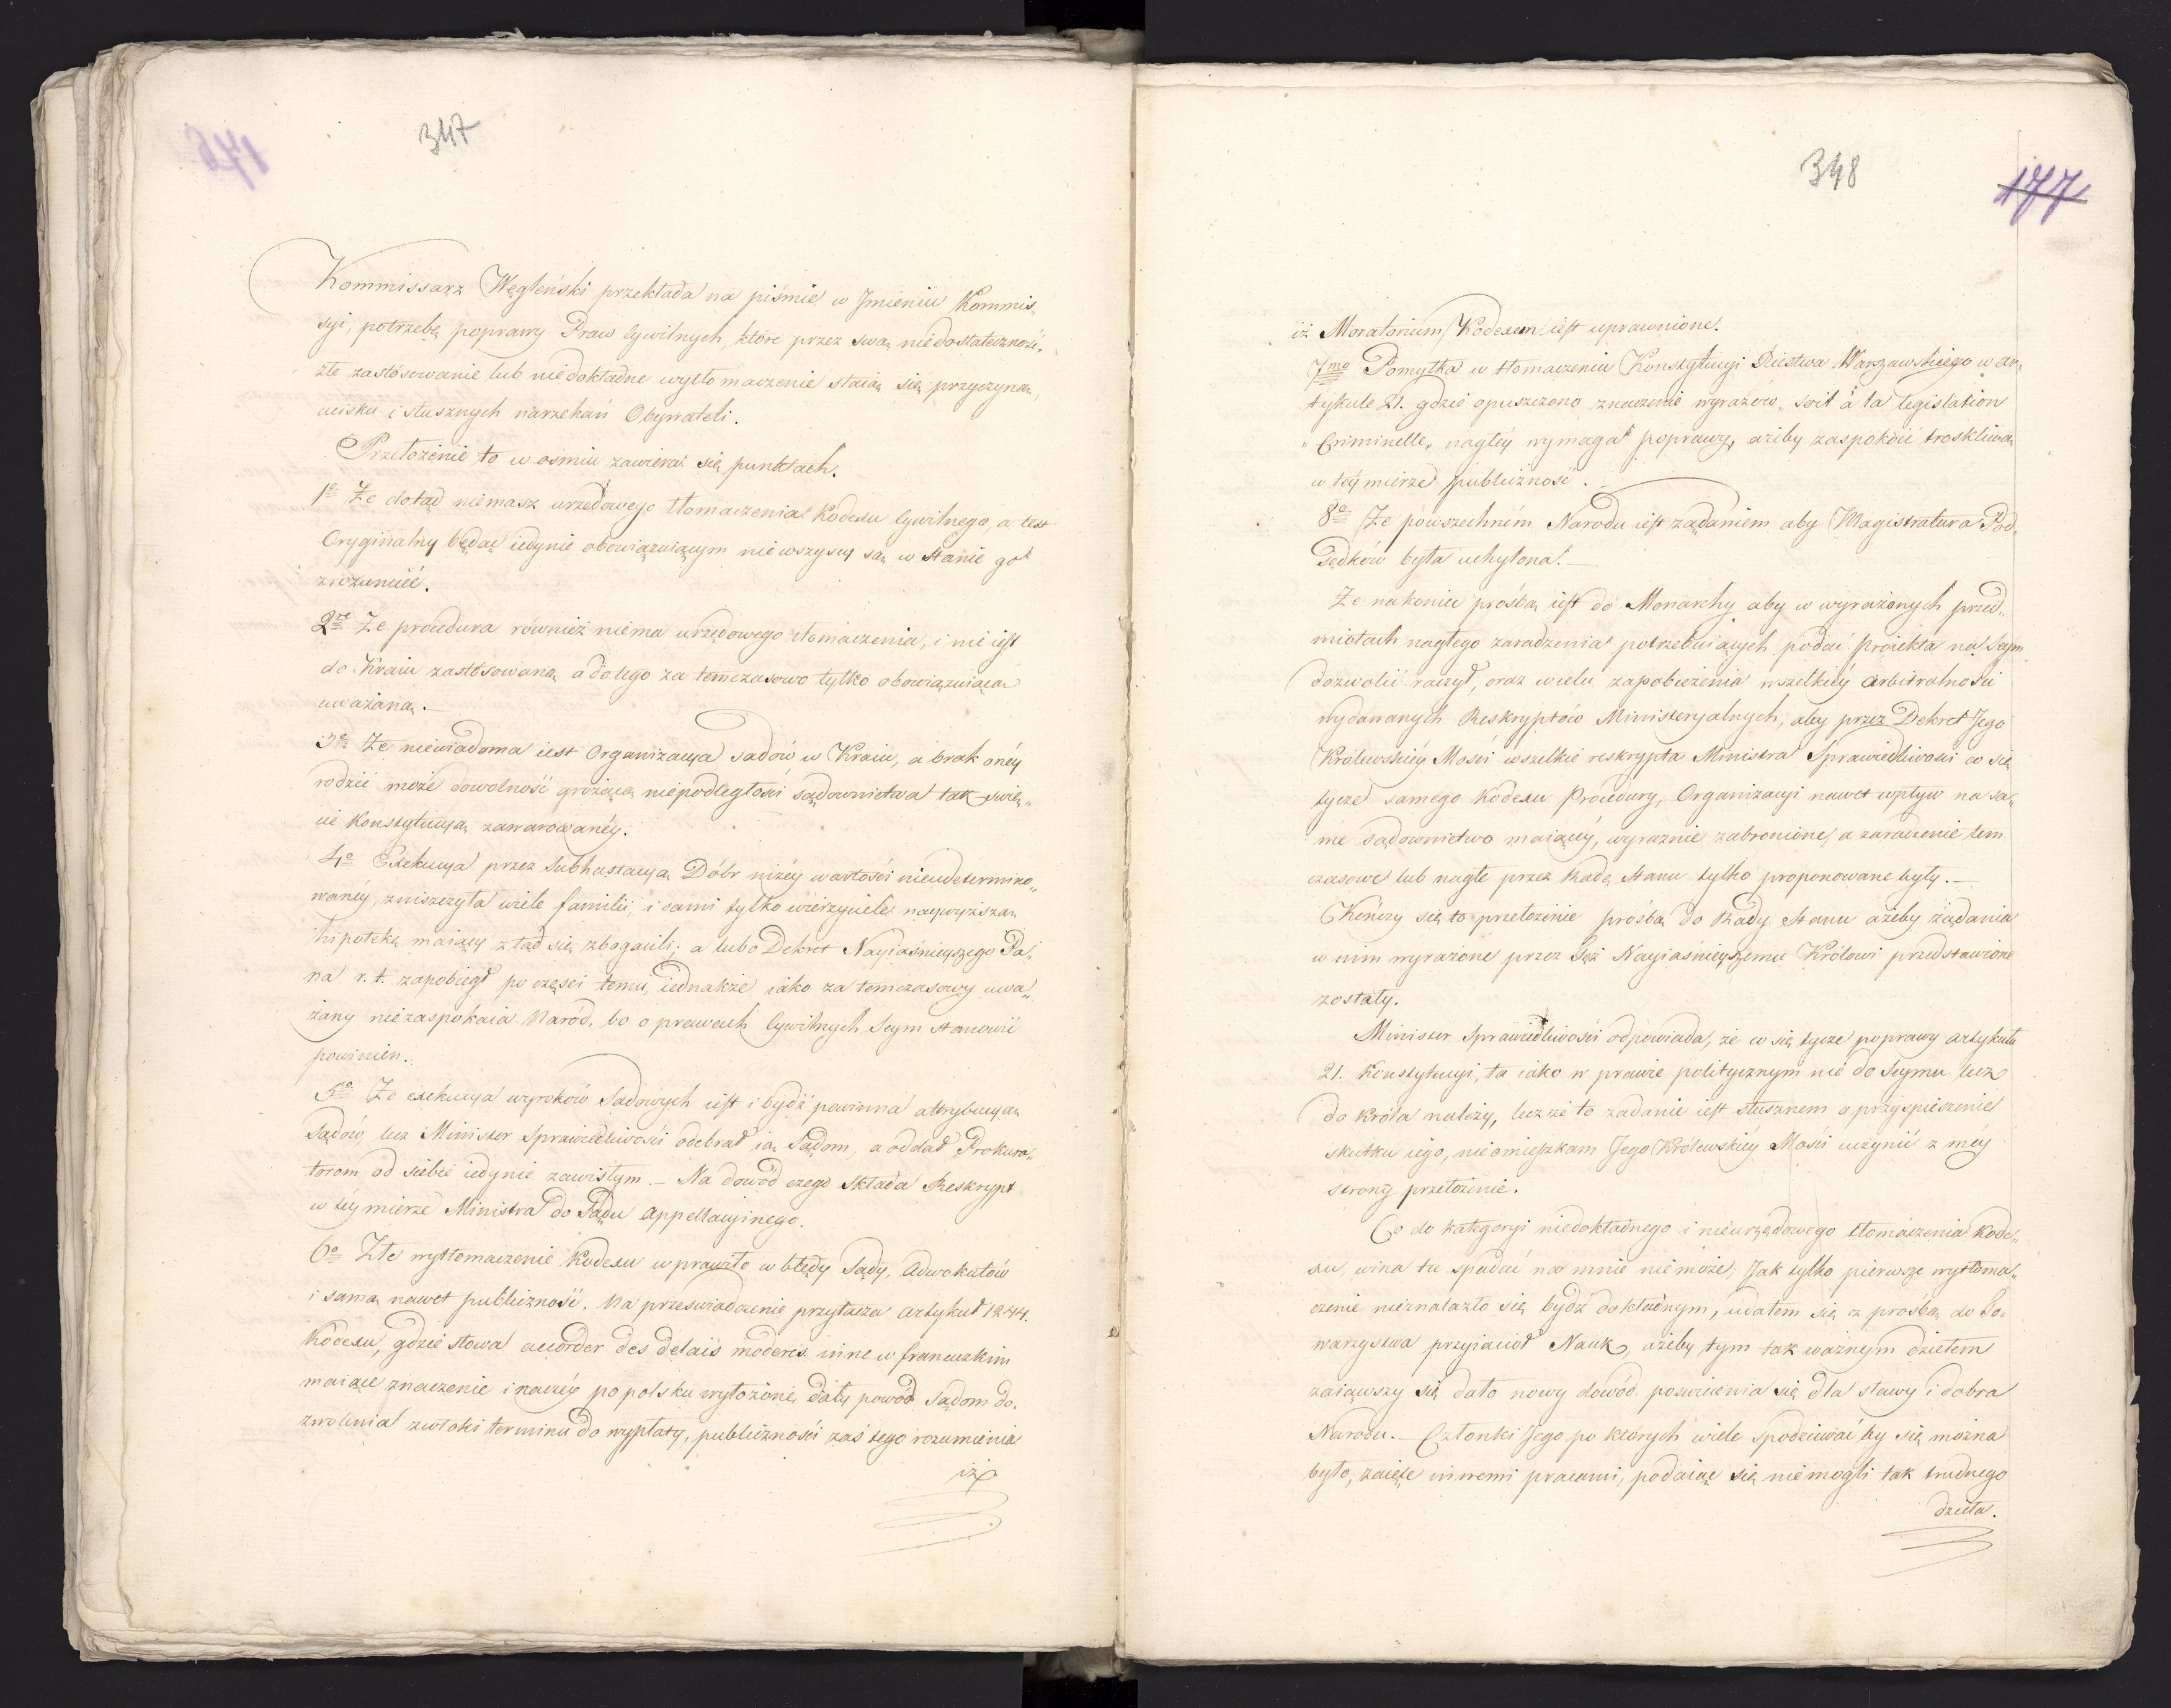 347
Kommissarz Węgleński przekłada na piśmie w Jmieniu Kommis„
syi, potrzebę poprawy Praw Cywilnych, które przez swą niedostateczność,
złe zastósowanie lub niedokładne wytłomaczenie staią się przyczyną,
ucisku i słusznych narzekań Obywateli.
Przełożenie to w ośmiu zawiera się punktach.
1o Że dotąd niemasz urzędowego tłomaczenia Kodexu Cywilnego, a text
Oryginalny będąc iedynie obowiązuiącym nie wszyscy są w stanie go
zrozumieć.
2re Że procedura również niema urzędowego tłomaczenia, i nie iest
do Kraiu zastósowaną a do tego za temczasowo tylko obowiązuiącą
uważaną.—
3o Że niewiadoma iest Organizacya sądów w Kraiu, a brak oney
rodzić może dowolność grożącą niepodległości sądownictwa tak świę„
cie Konstytucyą zawarowanéy.
4o Exekucya przez Subhastacyą Dóbr niżéy wartości nieudetermino„
wanéy, zniszczyła wiele familii, i sami tylko wierzyciele naywyższą
hipotekę maiący ztąd się zbogacili; a lubo Dekret Nayiaśnieyszego Pa„
na r. t. zapobiegł po części temu, iednakże iako za temczasowy uwa„
żany niezaspokaia Naród, bo o prawach Cywilnych Seym stanowić
powinien.
5o Że exekucya wyroków Sądowych iest i bydź powinna attrybucyą
Sądów, lecz Minister Sprawiedliwości odebrał ią Sądom, a oddał Prokura„
torom od siebie iedynie zawisłym.— Na dowód czego składa Reskrypt
w téy mierze Ministra do Sądu Appellacyinego.
6o Złe wytłomaczenie Kodexu wprawiło w błędy Sądy, Adwokatów
i samą nawet publiczność. Na przeświadczenie przytacza artykuł 1244.
Kodexu, gdzie słowa accorder des delais moderés inne w francuzkim
maiące znaczenie inaczéy po polsku wyłożone, dały powód Sądom do„
zwolenia zwłoki terminu do wypłaty, publiczności zaś tego rozumienia
iż
348
177
iż Moratorium Kodexem iest uprawnione.
7mo Pomyłka w tłomaczeniu Konstytucyi Xięstwa Warszawskiego w ar„
tykule 21. gdzie opuszczono znaczenie wyrazów „soit à la legislation
„Criminelle„ nagłéy wymaga poprawy, ażeby zaspokoić troskliwą
w téy mierze publiczność.—
8o Że powszechném Narodu iest żądaniem aby Magistratura Pod„
sędków była uchylona.—
Że nakoniec prośbą iest do Monarchy aby w wyrażonych przed„
miotach nagłego zaradzenia potrzebuiących podać proiekta na Seym
dozwolić raczył, oraz w celu zapobieżenia wszelkiéy arbitralności
wydawanych Reskryptów Ministeryalnych, aby przez Dekret Jego
Królewskiéy Mości wszelkie reskrypta Ministra Sprawiedliwości co się
tycze samego Kodexu Procedury, Organizacyi nawet wpływ na sa„
me sądownictwo maiącéy, wyraźnie zabronione, a zaradzenie tem
czasowe lub nagłe przez Radę Stanu tylko proponowane były.—
Kończy się to przełożenie prośbą do Rady Stanu ażeby żądania
w nim wyrażone przez Nię Nayiaśnieyszemu Królowi przedstawione
zostały.
Minister Sprawiedliwości odpowiada, że co się tycze poprawy artykułu
21. Konstytucyi, ta iako w prawie politycznym nie do Seymu lecz
do Króla należy, lecz że to żądanie iest słusznem o przyspieszenie
skutku iego, nieomieszkam Jego Królewskiéy Mości uczynić z méy
strony przełożenie.
Co do kategoryi niedokładnego i nieurzędowego tłomaczenia Kode„
xu wina ta spadać na mnie nie może; Jak tylko pierwsze wytłoma„
czenie nieznalazło się bydź dokładnym, udałem się z prośbą do To„
warzystwa przyiaciół Nauk, ażeby tym tak ważnym dziełem
zaiąwszy się dało nowy dowód poświęcenia się dla sławy i dobra
Narodu.— Członki Jego po których wiele spodziewać by się można
było, zaięte innemi pracami, podaiąc się niemogli tak trudnego
dzieła.